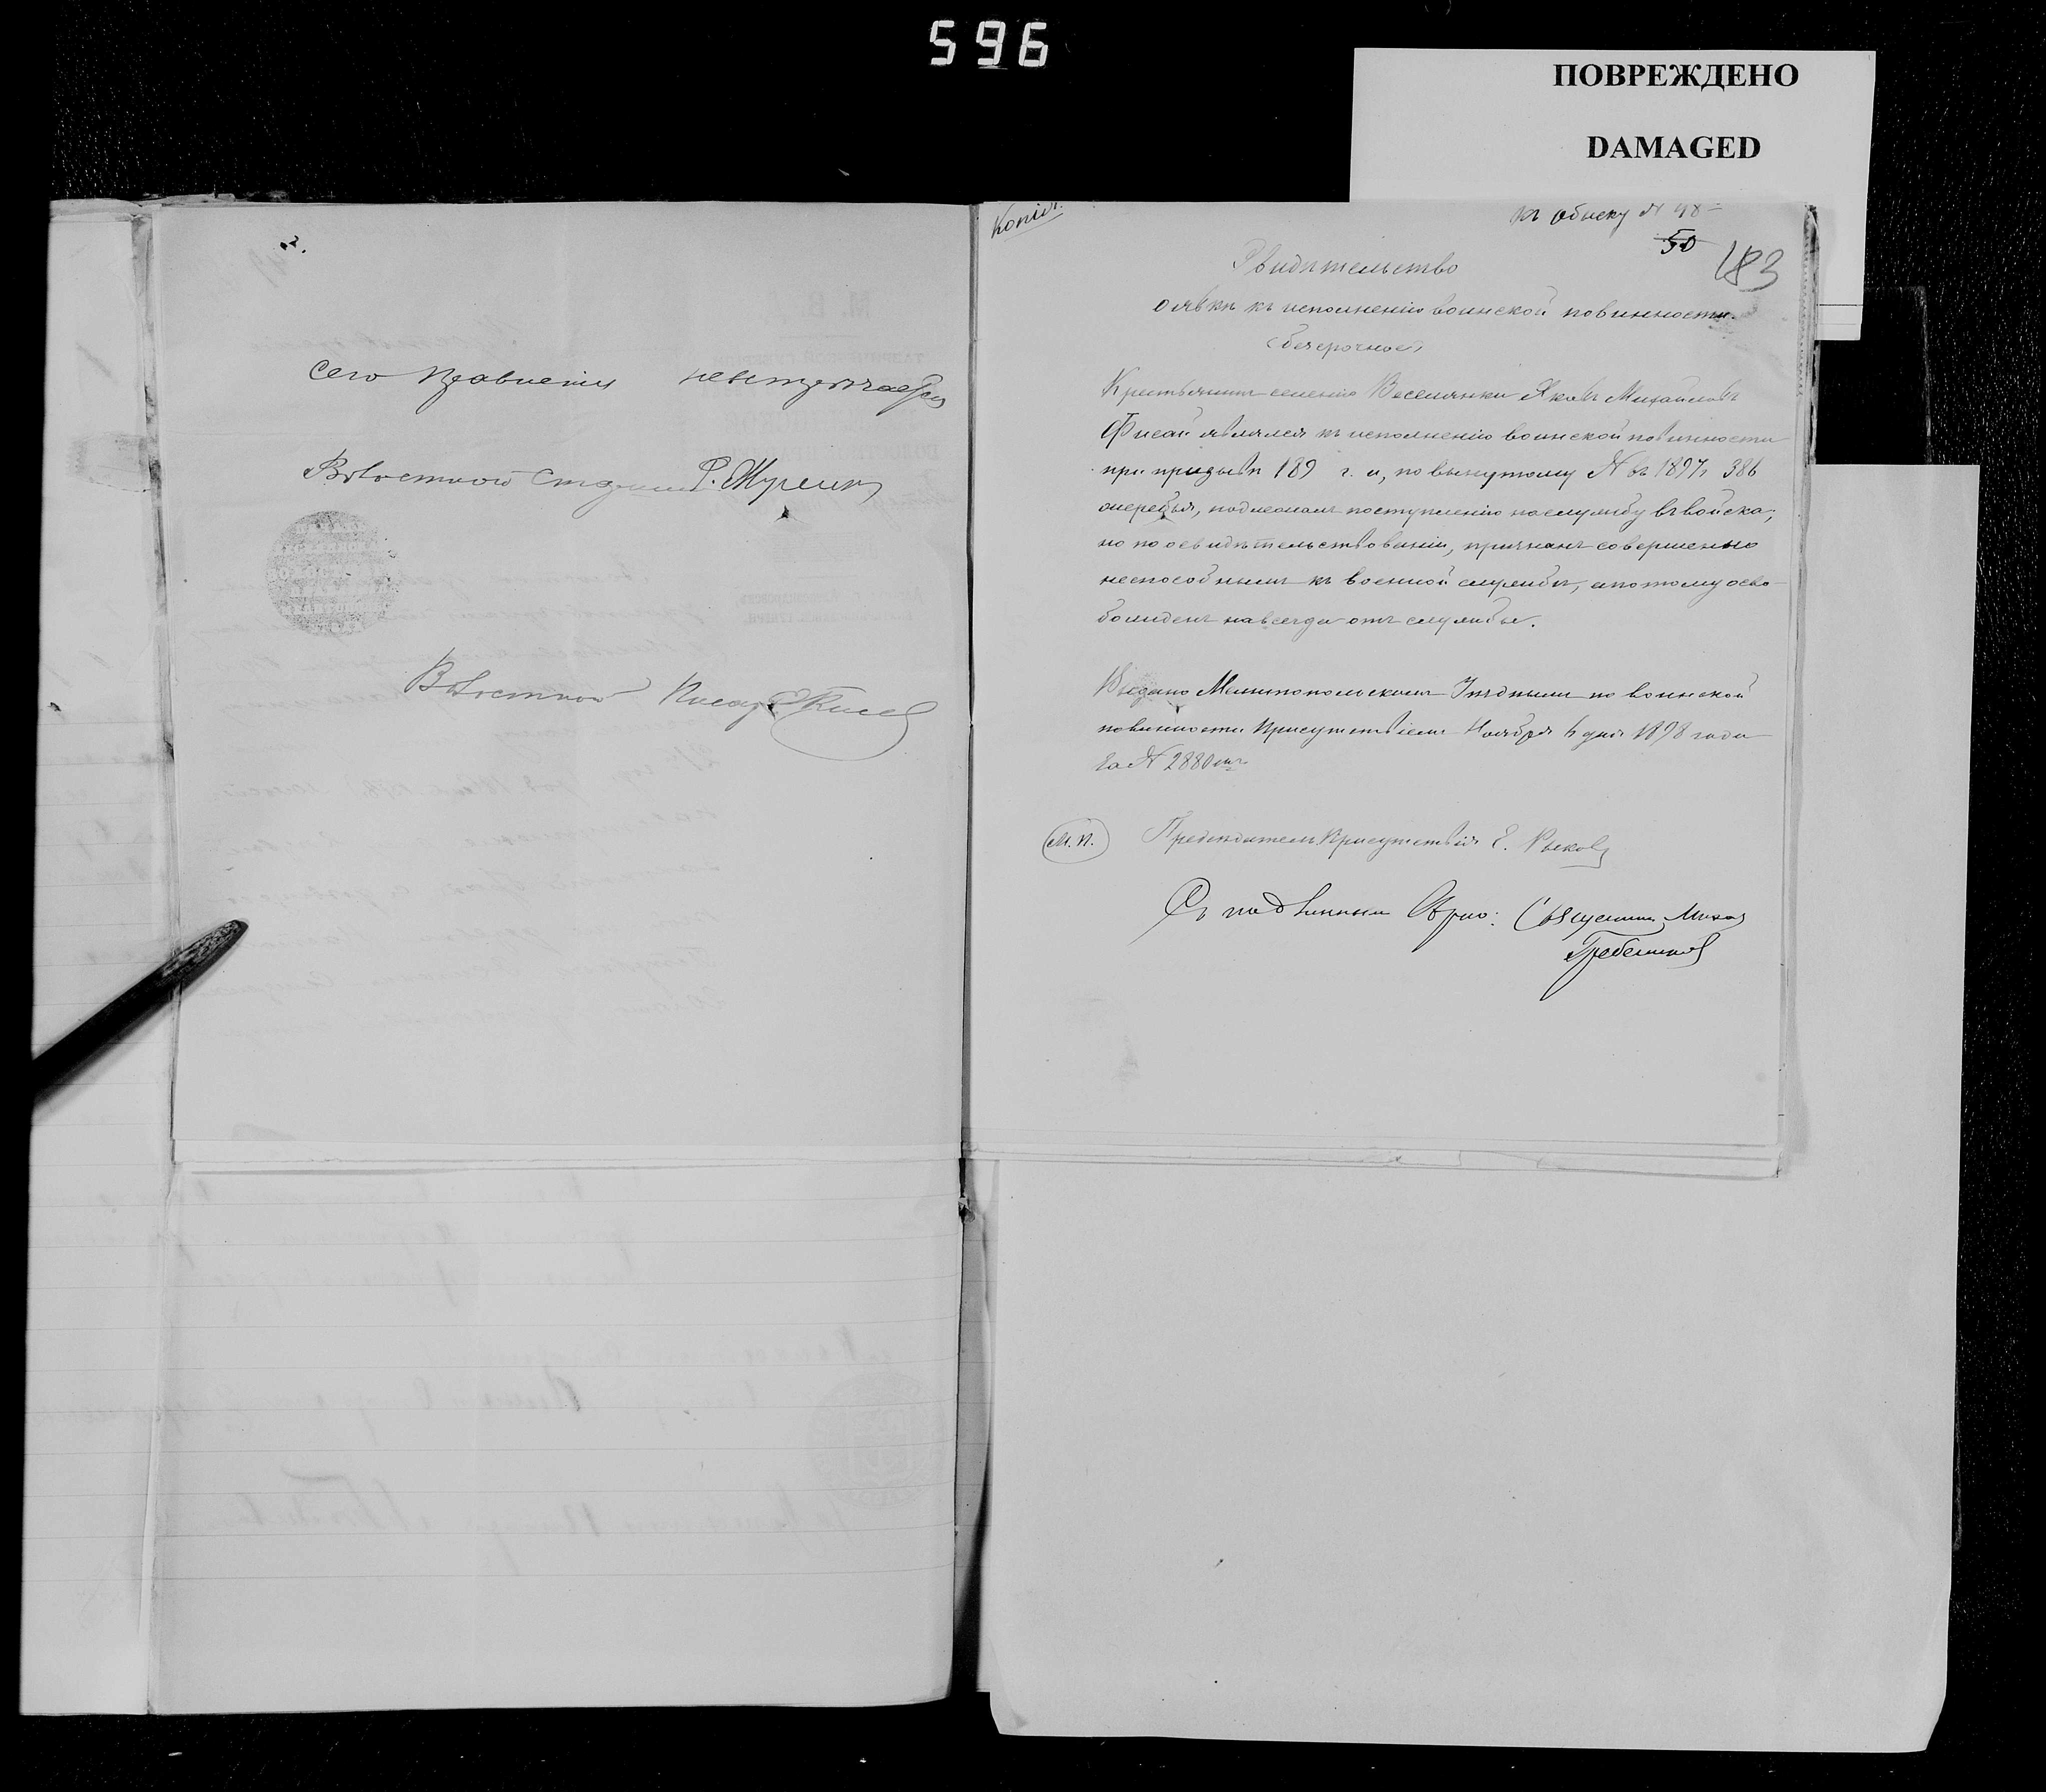 596
ПОВРЕЖДЕНО
DAMAGED
2.
сего Правленія невстречается
Волостной Старшина
Волостной Писарь
Копія.
къ обыску № 48
50
183
Свидѣтельство
о явкѣ къ исполненію воинской повинности.
(безсрочное)
Крестьянинъ селенія Веселянки Яковъ Михайловъ
Фисай являлся къ исполненію воинской повинности
при призывѣ 189 г. и, по вынутому № въ 1897г 386
жеребья, подлежалъ поступленію на службу въ войска;
но по освидѣтельствованіи, признанъ совершенно
неспособнымъ къ военной службѣ, а потому осво-
божденъ навсегда отъ службы.
Выдано Мелитопольскимъ Уѣзднымъ по воинской
повинности Присутствіемъ Ноября 6 дня 1898 года
За № 2880
М.П.
Предсѣдатель Присутствія Е. Рыковъ
Съ подлиннымъ вѣрно: Священникъ
Гребенниковъ